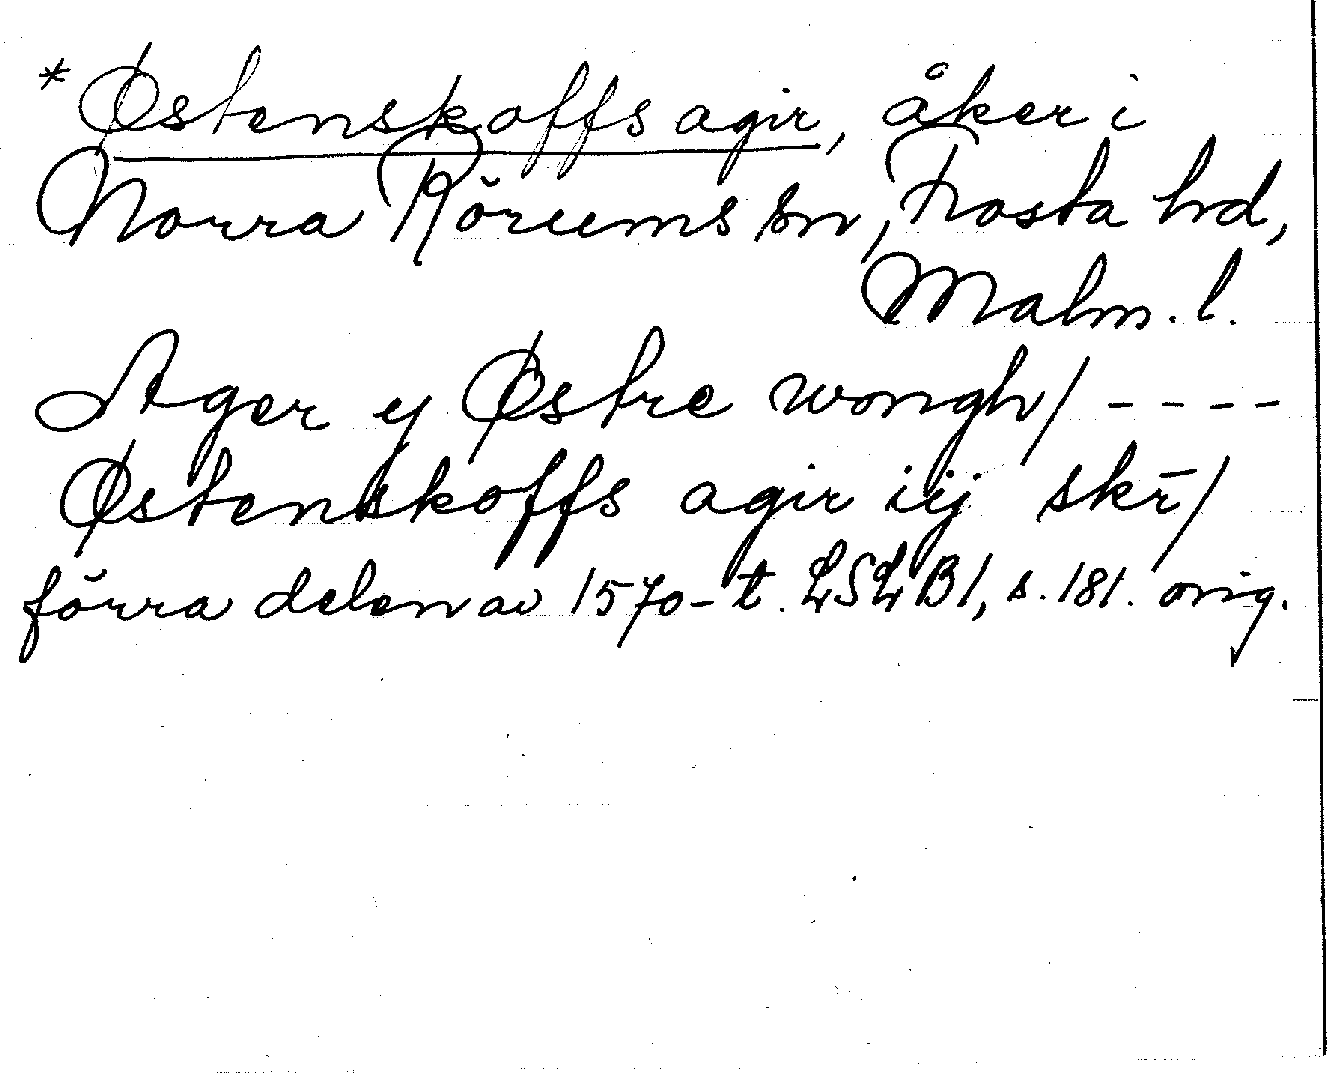 * Østenskoffs agir, åker i
Norra Rörums sn, Frosta hd,
Malm. l.
Ager y Østre wongh/ ----
Østenskoffs agir iij skr̄/
förra delen av 1570-t. LSLB1, s. 181. orig.